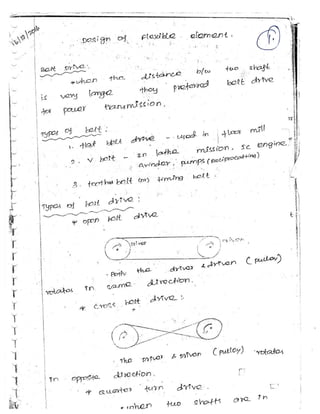 16/12/2016
Design of flexible element.
1.
Belt Drive:
* when the distance b/w two shaft
is very large they preferred belt drive
for power transmission.
Types of belt:
1. flat belt drive - used in flour mill
2. V belt - In lathe mission, IC engine
grinder, pumps (reciprocating)
3. toothed belt (or) timing belt.
Types of belt drive:
* open belt drive
driver driven
- Both the driver & driven (pulley)
rotates in same direction.
* cross belt drive:
- The driver & driven (pulley) rotates
in opposite direction.
* quarter turn drive.
- when two shafts are in